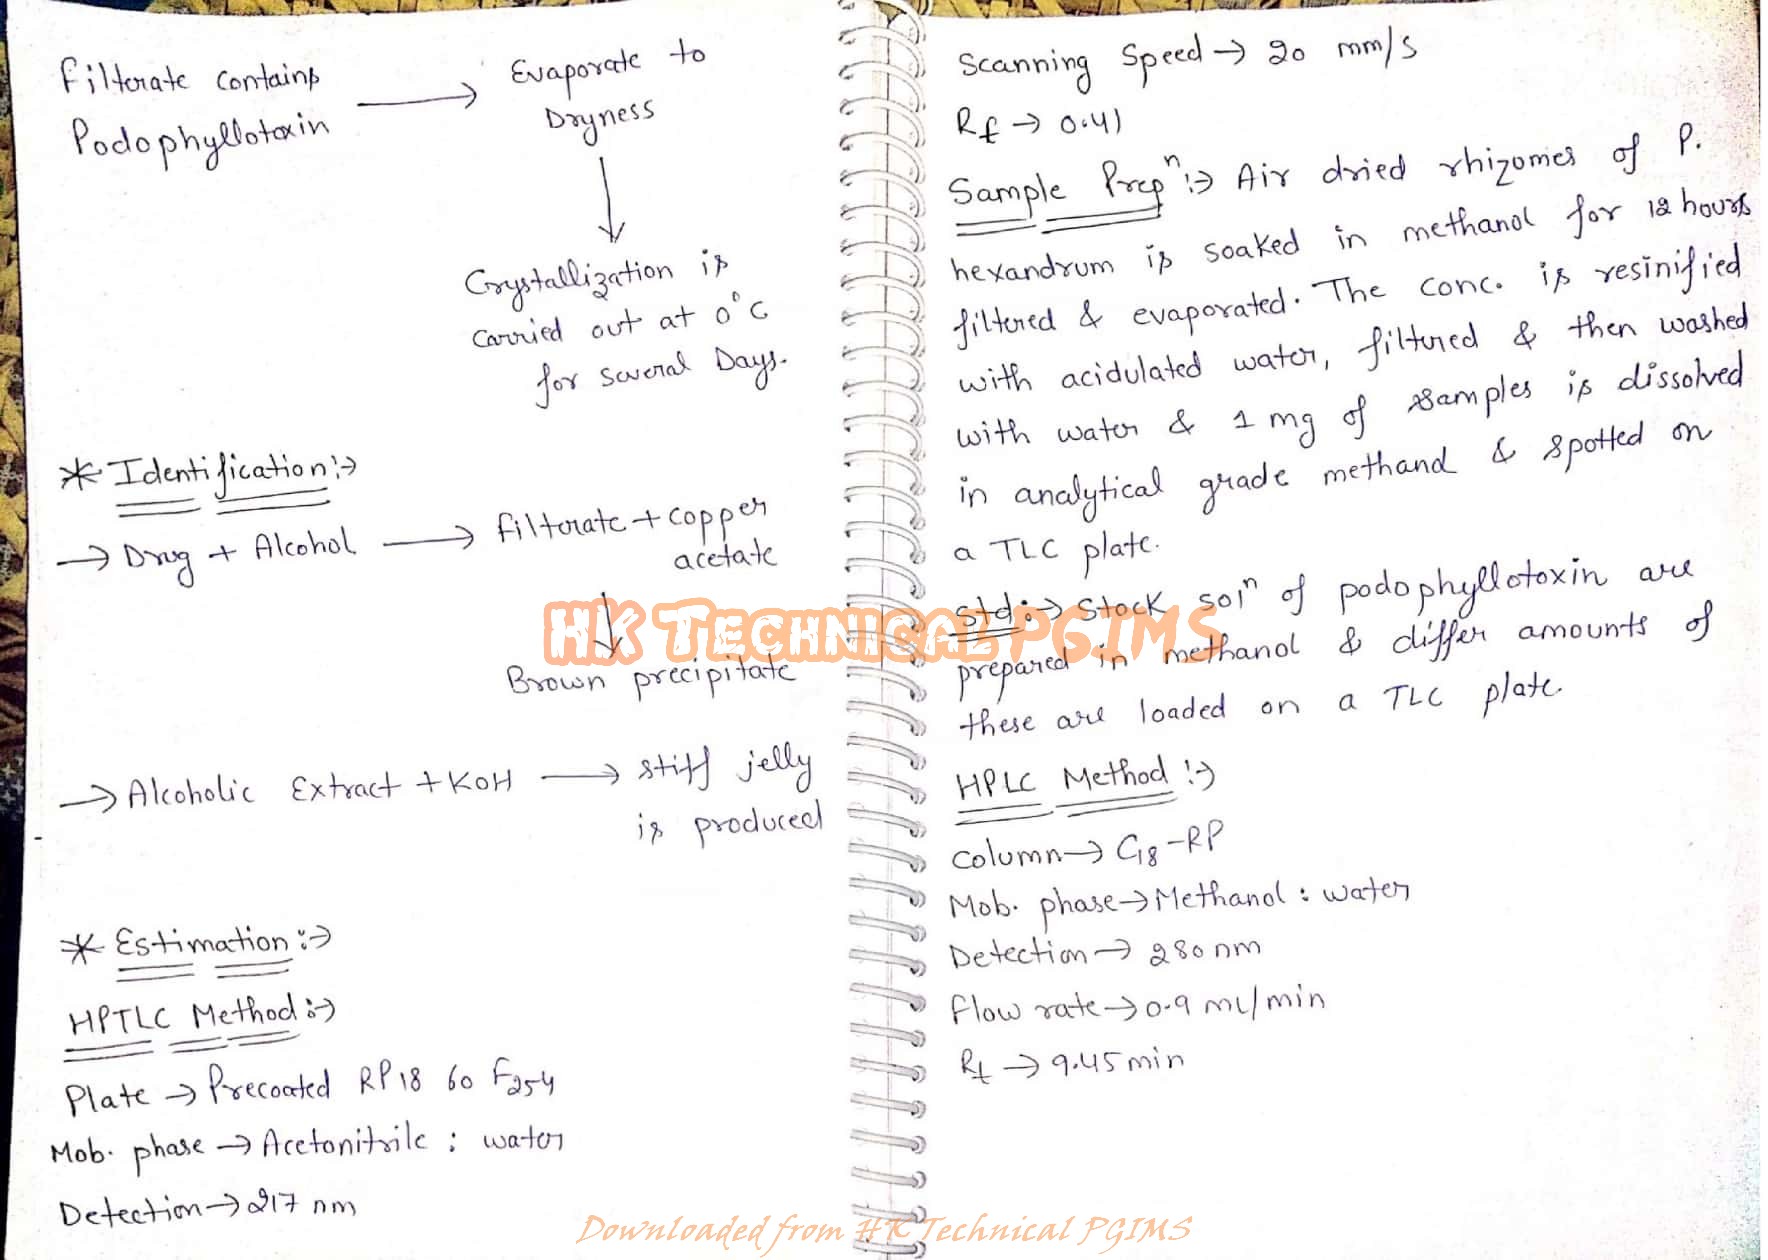 Filterate contains
Podophyllotoxin
Evaporate to
Dryness
Crystallization is
carried out at 0°C
for several Days.
* Identification :→
→ Drug + Alcohol → filterate + copper
acetate
Brown precipitate
→ Alcoholic Extract + KOH → stiff jelly
is produced
* Estimation :→
HPTLC Method :→
Plate → Precoated RP18 60 F254
Mob. phase → Acetonitrile : water
Detection → 217 nm
Scanning Speed → 20 mm/s
Rf → 0.41
Sample Prepⁿ :→ Air dried rhizomes of P.
hexandrum is soaked in methanol for 12 hours
filtered & evaporated. The conc. is resinified
with acidulated water, filtured & then washed
with water & 1 mg of samples is dissolved
in analytical grade methanol & spotted on
a TLC plate.
Std :→ Stock solⁿ of podophyllotoxin are
prepared in methanol & differ amounts of
these are loaded on a TLC plate.
HPLC Method :→
Column → C18-RP
Mob. phase → Methanol : water
Detection → 280 nm
flow rate → 0.9 ml/min
Rt → 9.45 min
HK Technical PGIMS
Downloaded from HK Technical PGIMS